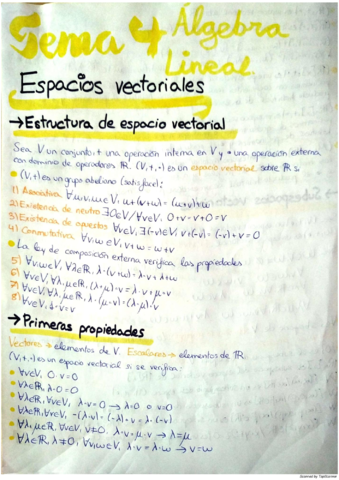 Tema 4 Álgebra
Lineal
Espacios vectoriales
→Estructura de espacio vectorial
Sea V un conjunto, + una operación interna en V y • una operación externa
con dominio de operadores ℝ. (V,+,·) es un espacio vectorial sobre ℝ si
• (V,+) es un grupo abeliano (satisface):
1) Asociativa ∀u,v,w∈V, u+(v+w) = (u+v)+w
2) Existencia de neutro ∃0∈V/∀v∈V, 0+v=v+0=v
3) Existencia de opuestos ∀v∈V, ∃(-v)∈V, v+(-v) = (-v)+v=0
4) Conmutativa ∀v,w∈V, v+w=w+v
• La ley de composición externa verifica las propiedades
5) ∀v,w∈V, ∀λ∈ℝ, λ·(v+w)=λ·v+λ·w
6) ∀v∈V, ∀λ,μ∈ℝ, (λ+μ)·v=λ·v+μ·v
7) ∀v∈V, ∀λ,μ∈ℝ, λ·(μ·v)=(λ·μ)·v
8) ∀v∈V, 1·v=v
→Primeras propiedades
Vectores → elementos de V. Escalares → elementos de ℝ.
(V,+,·) es un espacio vectorial si se verifica:
• ∀v∈V, 0·v=0
• ∀λ∈ℝ, λ·0=0
• ∀λ∈ℝ, ∀v∈V, λ·v=0 → λ=0 o v=0
• ∀λ∈ℝ, ∀v∈V, -(λ·v)=(-λ)·v=λ·(-v)
• ∀λ,μ∈ℝ, ∀v∈V, v≠0, λ·v=μ·v → λ=μ
• ∀λ∈ℝ, λ≠0, ∀v,w∈V, λ·v=λ·w → v=w
Scanned by TapScanner